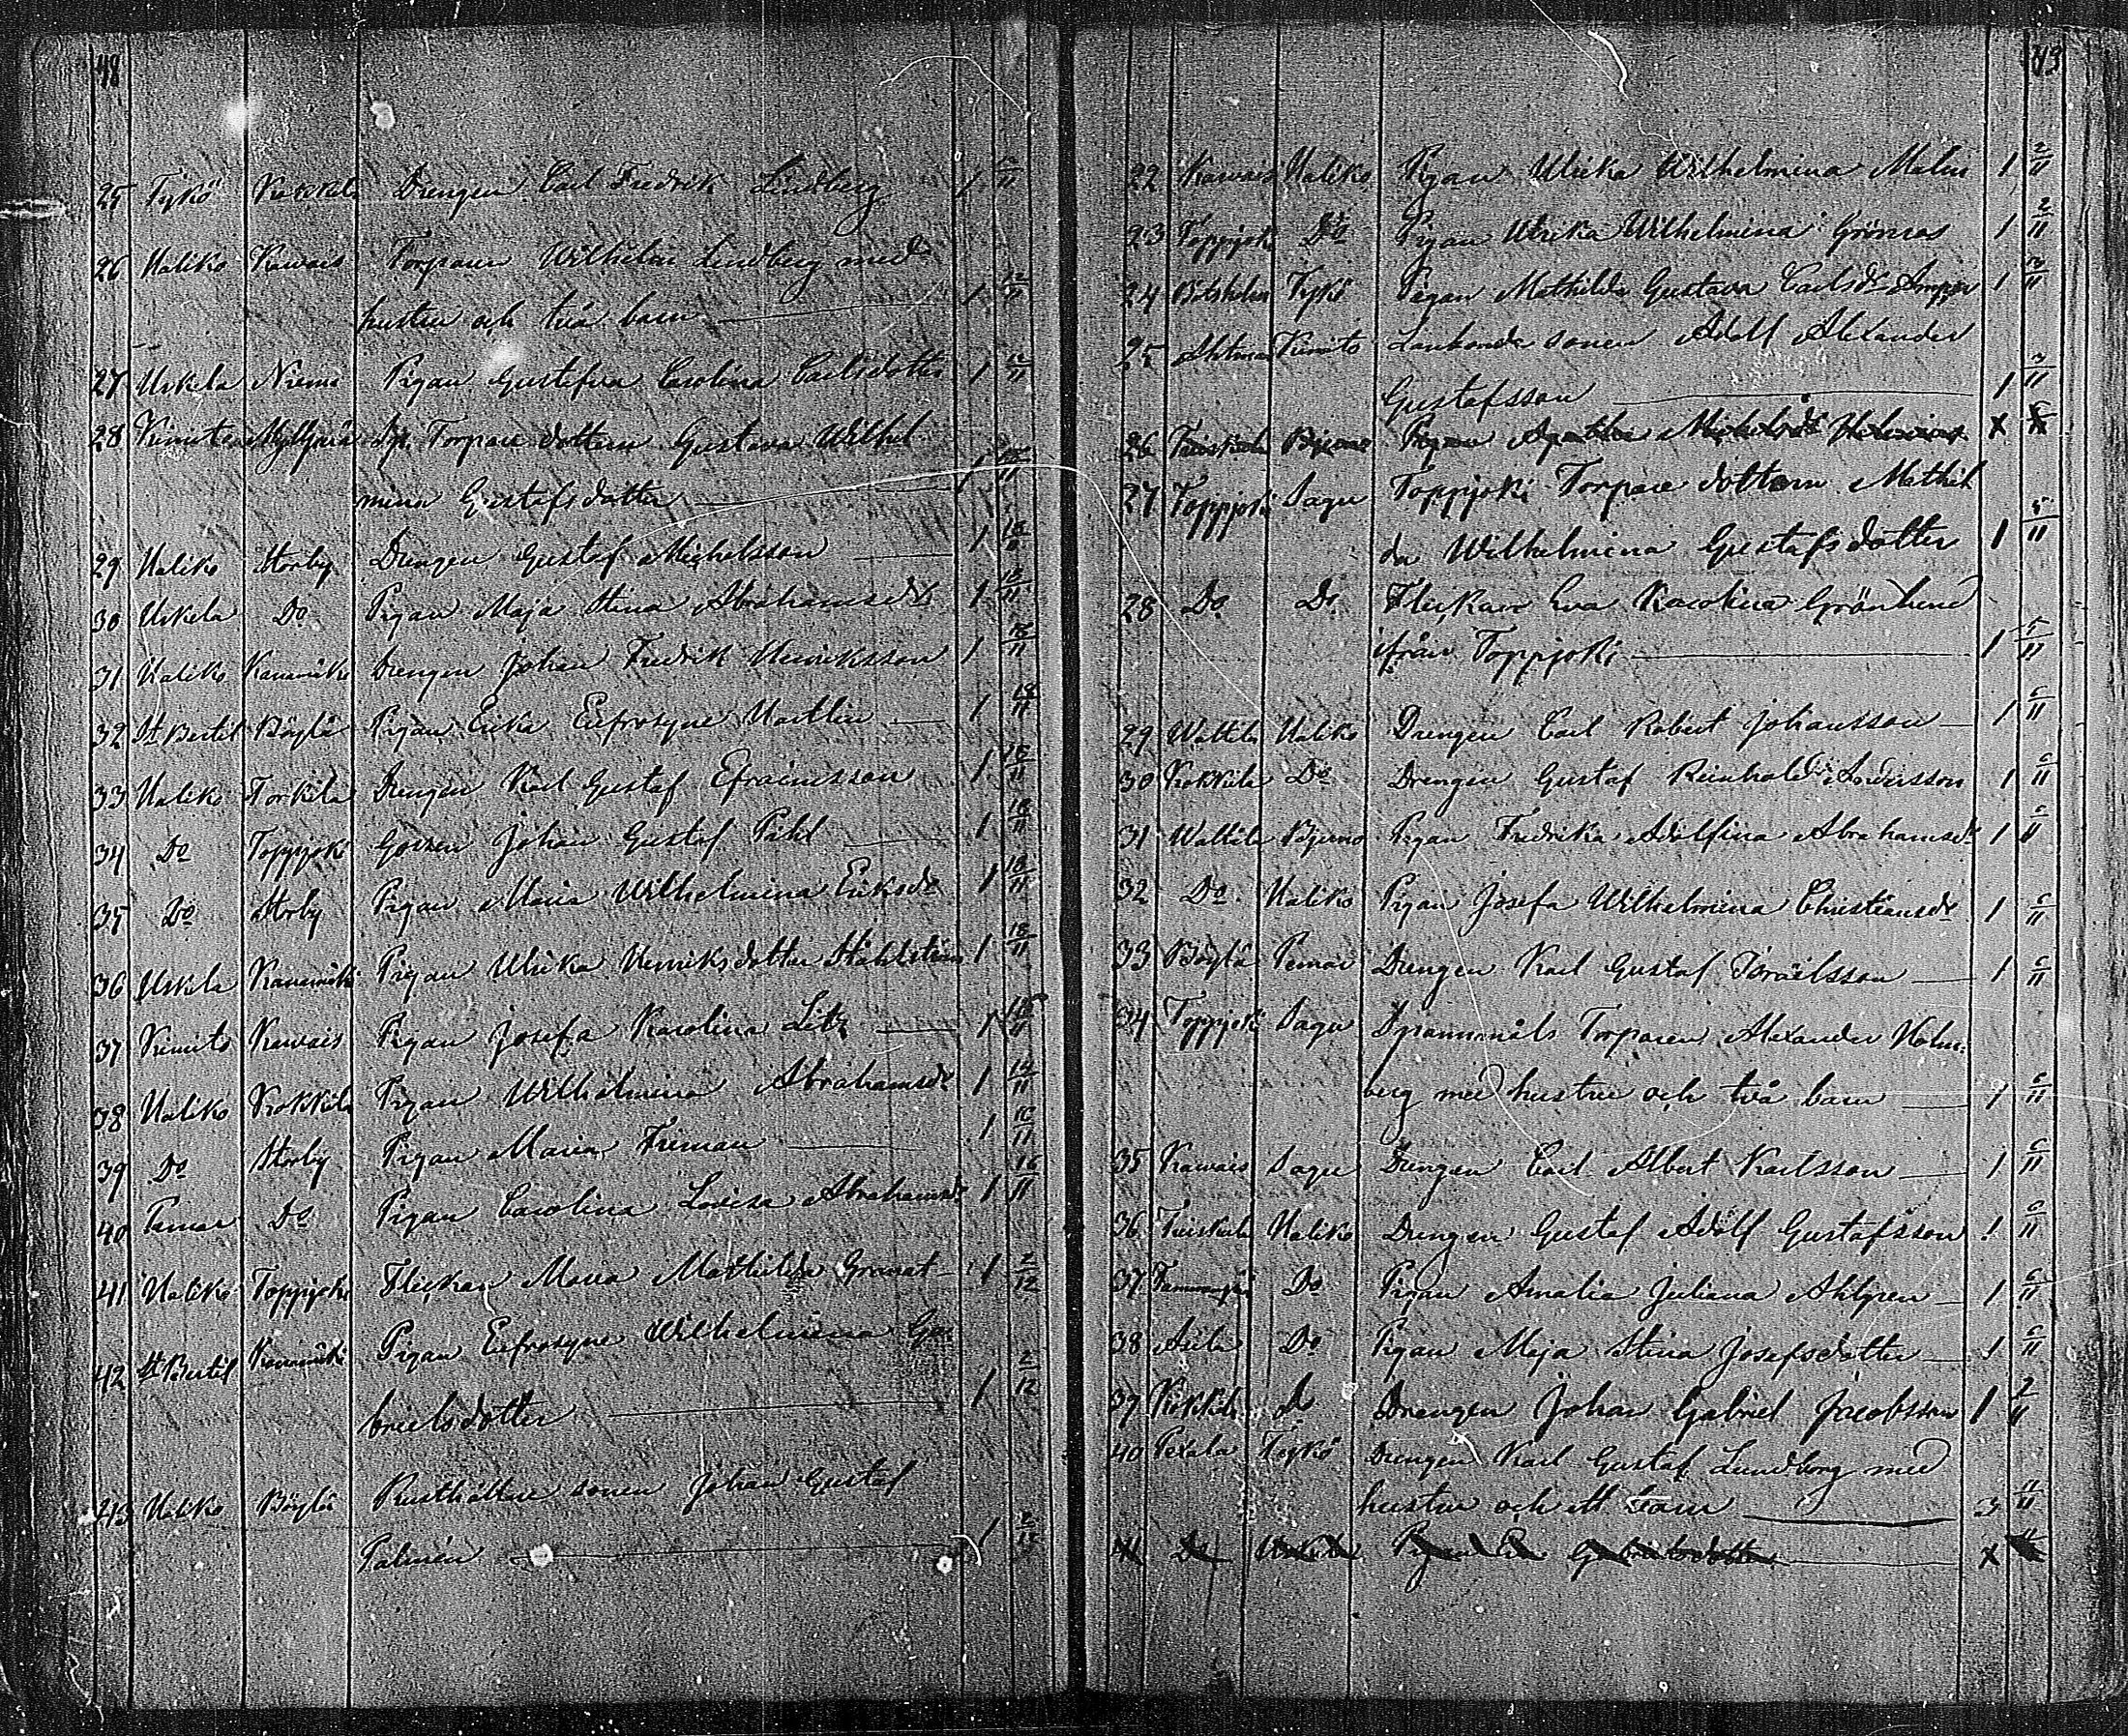 48
25 Tykö Kokkila Drengen Carl Fredrik Lindberg 1 6/11
26 Haliko Kawais Torparen Wilhelm Lindberg med
hustru och två barn 1 12/11
27 Uskela Niemi Pigan Gustafva Carolina Carlsdotter 1 12/11
28 Kimito Myllyperä Torpare dottern Gustava Wilhel
mina Gustafsdotter 1
29 Haliko Storby Drengen Gustaf Michelsson 1 18/11
30 Uskela Do Pigan Maja Stina Abrahamsdr 1 18/11
31 Haliko Kanamäki Drengen Johan Fredrik Henriksson 1 18/11
32 St Bertil Böylä Pigan Erika Eufrosyne Hartlin 1 18/11
33 Haliko Torkila Drengen Karl Gustaf Efraimsson 1 18/11
34 Do Toppjoki Gossen Johan Gustaf Pihl 1 18/11
35 Do Storby Pigan Maria Wilhelmina Eriksdr 1 18/11
36 Uskela Kanamäki Pigan Ulrika Henriksdotter Ståhlström 1 18/11
37 Kimito Kawais Pigan Josefa Karolina Litz 1
38 Haliko Kokkila Pigan Wilhelmina Abrahamsdr 1
39 Do Storby Pigan Maria Friman 1
40 Pemar Do Pigan Carolina Lovisa Abrahamsdr 1 16/11
41 Haliko Toppjoki Flickan Maria Mathilda Granat 1 2/12
42 St Bertil Kanamäki Pigan Eufrosyne Wilhelmina Ga
brielsdotter 1 2/12
43 Haliko Böylä Rusthållare sonen Johan Gustaf
Palmén 1 2/12
43
22 Kawais Haliko Pigan Ulrika Wilhelmina Malm 1 2/11
23 Toppjoki Do Pigan Ulrika Wilhelmina Grönroos 1 2/11
24 Båtsholm Tykö Pigan Mathilda Gustava Carlsdr 1
25 Kimito Lanbonde sonen Adolf Alexander
Gustafsson 1 3/11
26 Bjerno Pigan Agatha Michelsdr x
27 Toppjoki Sagu Toppjoki Torpare dottern Mathil
da Wilhelmina Gustafsdotter 1 5/11
28 Do Do Flickan Eva Karolina Grönlund
ifrån Toppjoki 1 5/11
29 Wattila Haliko Drengen Carl Robert Johansson 1 6/11
30 Kokkila Do Drengen Gustaf Reinhold Andersson 1 6/11
31 Wattila Bjerno Pigan Fredrika Adolfina Abrahamsdr 1 6/11
32 Do Haliko Pigan Josefa Wilhelmina Christiansdr 1 6/11
33 Böylä Pemar Drengen Karl Gustaf Israelsson 1 6/11
34 Toppjoki Sagu Spannmåls Torparen Alexander Holm-
berg med hustru och två barn 1 6/11
35 Kawais Sagu Drengen Carl Albert Karlsson 1 6/11
36 Truskula Haliko Drengen Gustaf Adolf Gustafsson 1 6/11
37 Do Pigan Amalia Juliana Ahlgren 1 6/11
38 Do Pigan Maja Stina Josefsdotter 1 6/11
39 Kokkila do Drengen Johan Gabriel Jacobsson 1
40 Pexala Tykö Drengen Karl Gustaf Lundborg med
hustru och ett barn 3 11/11
41 Do Uskela Pigan Gabrielsdotter x